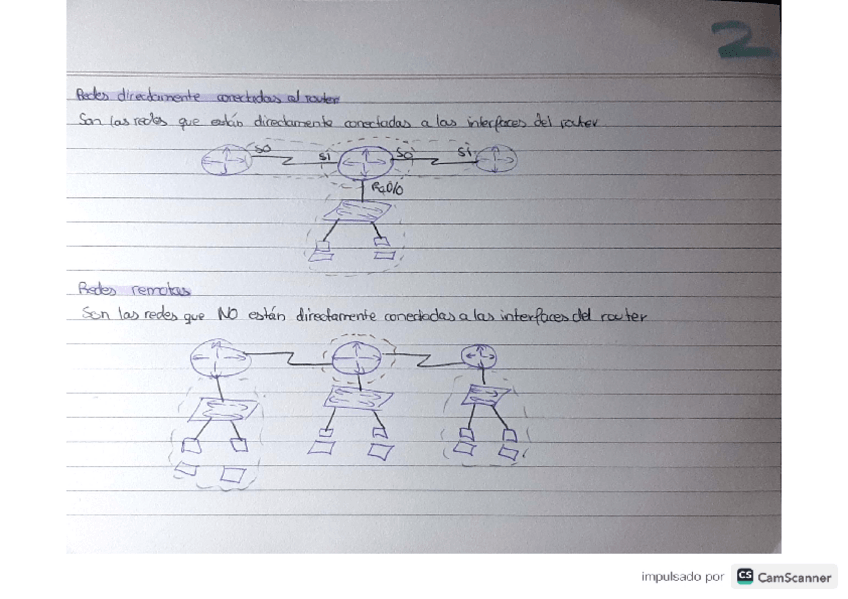 2
Redes directamente conectadas al router
Son las redes que están directamente conectadas a las interfaces del router.
S0 S1 S0 S1
Redes remotas
Son las redes que NO están directamente conectadas a las interfaces del router
impulsado por CS CamScanner